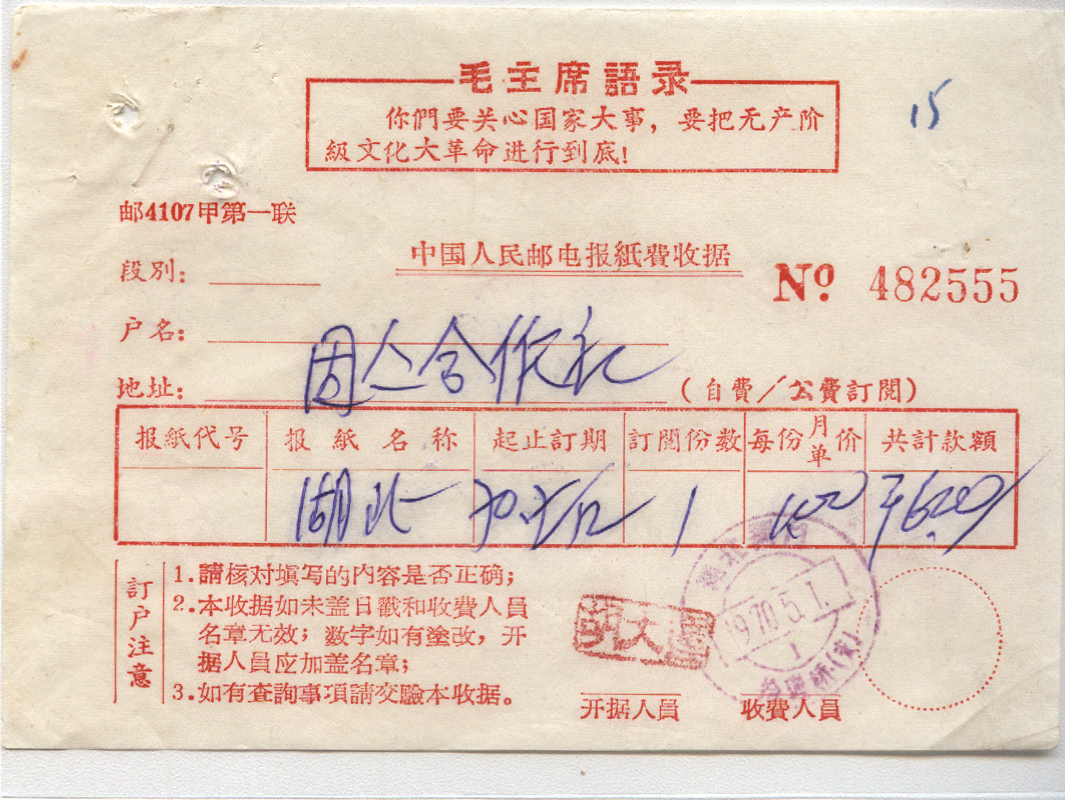 毛主席語录
你們要关心国家大事，要把无产阶
級文化大革命进行到底！
15
邮4107甲第一联
中国人民邮电报紙費收据
段别：
№ 482555
户名：
合作社
地址：
（自費／公費訂閱）
报紙代号 报紙名称 起止訂期 訂閱份数 每份月单价 共計款額
湖北 1
訂户注意
1.請核对填写的内容是否正确；
2.本收据如未盖日戳和收費人員
名章无效；数字如有塗改，开
据人員应加盖名章；
3.如有查詢事項請交驗本收据。
1970.5.7.
开据人員 收費人員